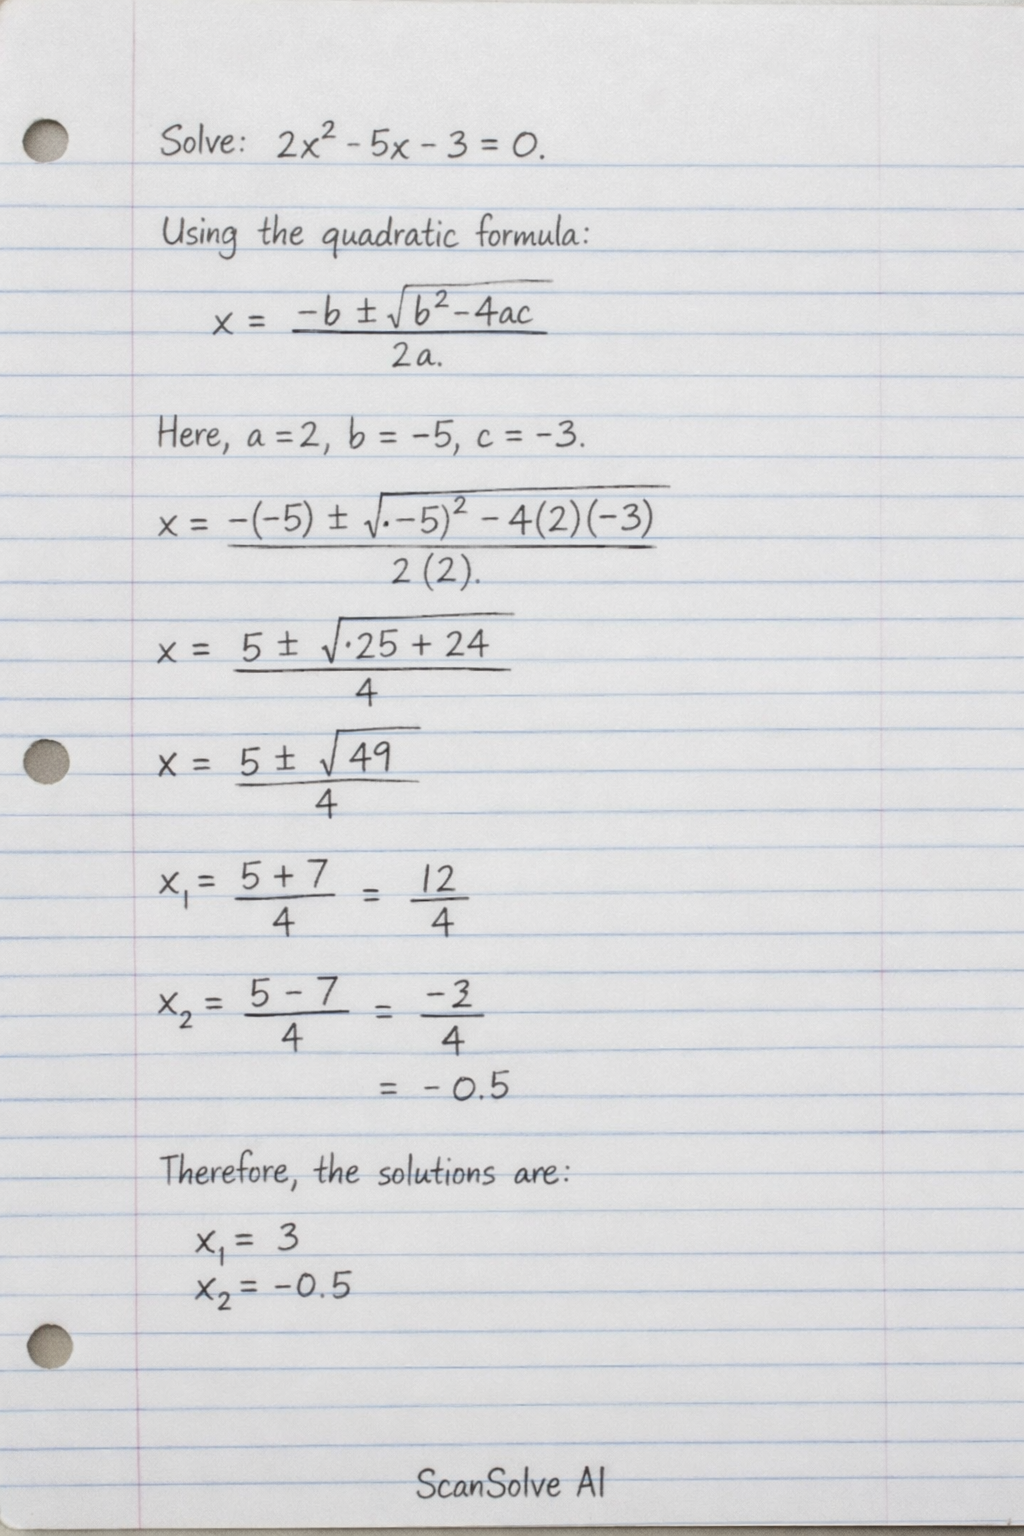 Solve: 2x² - 5x - 3 = 0.
Using the quadratic formula:
x = -b ± √b² - 4ac
2a.
Here, a = 2, b = -5, c = -3.
x = -(-5) ± √.-5)² - 4(2)(-3)
2(2).
x = 5 ± √·25 + 24
4
x = 5 ± √49
4
x₁ = 5 + 7 = 12
4 4
x₂ = 5 - 7 = -2
4 4
= -0.5
Therefore, the solutions are:
x₁ = 3
x₂ = -0.5
ScanSolve AI